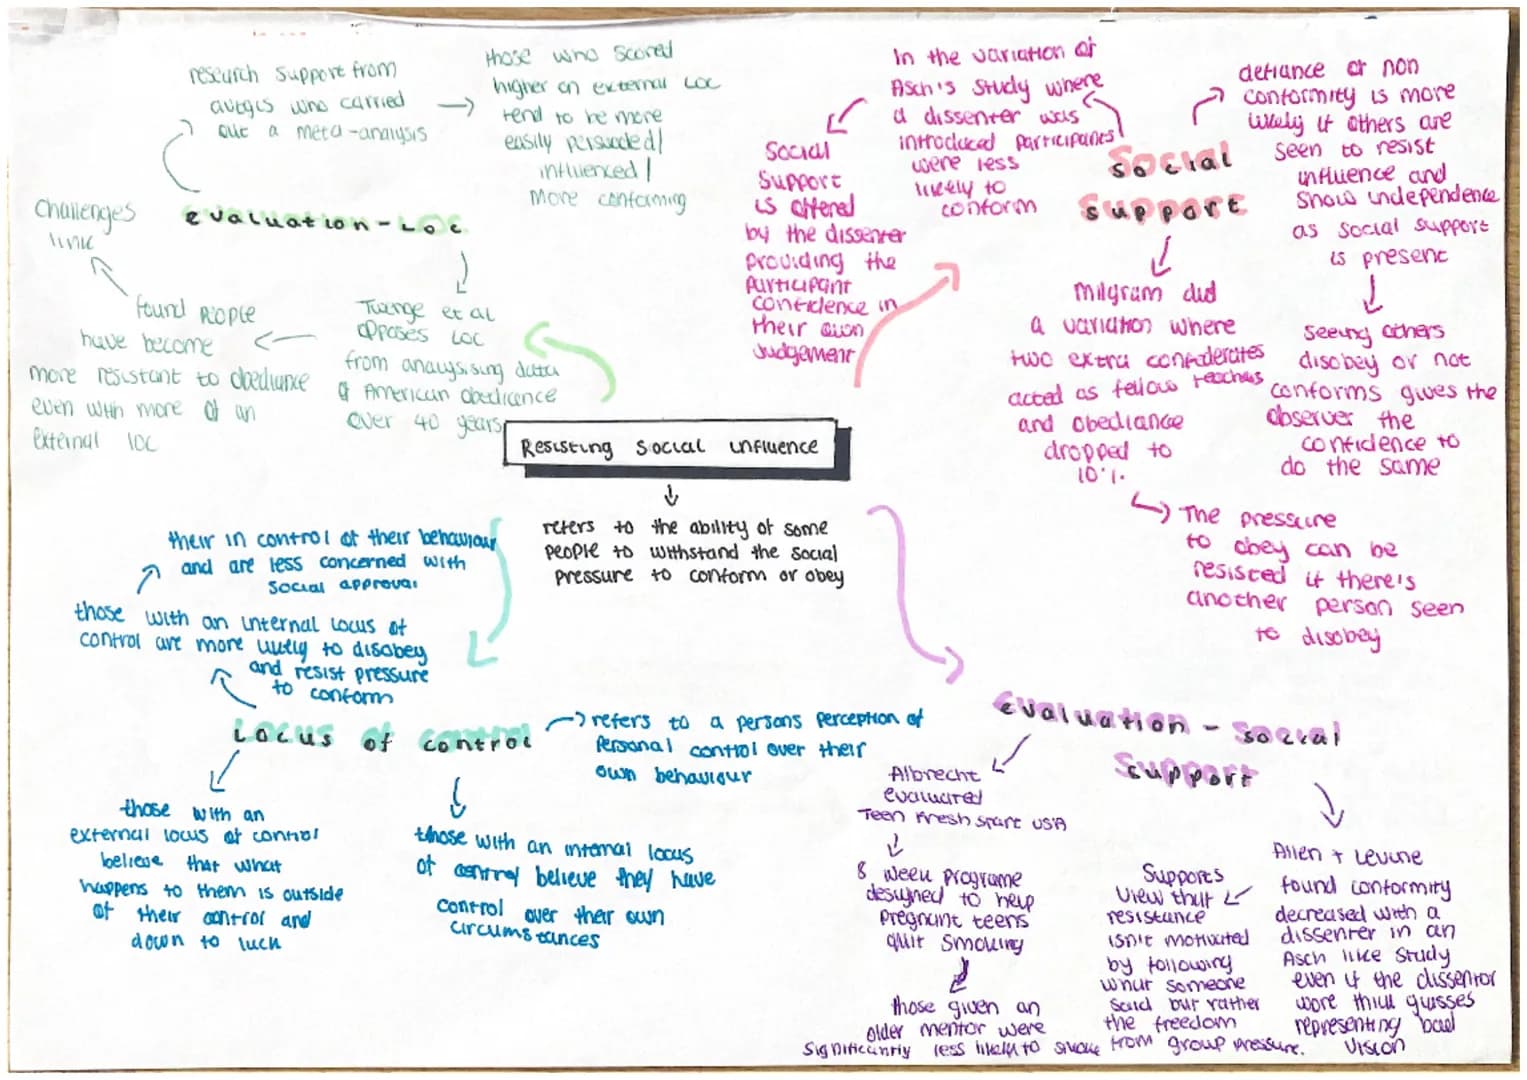 Resisting Social influence
refers to the ability of some
people to withstand the social
pressure to conform or obey
evaluation-LOC
research support from
avtgis who carried
out a meta-analysis
those who scored
higher on external LOC
tend to be more
easily persuaded/
influenced/
more conforming
Twenge et al
opposes LOC
from analysising data
of American obedience
over 40 years
found people
have become
more resistant to obediance
even with more of an
external loc
Challenges
link
Social
support
In the variation of
Asch's study where
a dissenter was
introduced participants
were less
likely to
conform
Social
support
is offered
by the dissenter
providing the
participant
confidence in
their own
judgement
defiance or non
conformity is more
likely if others are
seen to resist
influence and
show independence
as social support
is present
seeing others
disobey or not
conforms gives the
observer the
confidence to
do the same
Milgram did
a variation where
two extra confederates
acted as fellow teachers
and obediance
dropped to
10%.
The pressure
to obey can be
resisted if there's
another person seen
to disobey
Locus of control
refers to a persons perception of
personal control over their
own behaviour
those with an internal locus of
control are more likely to disobey
and resist pressure
to conform
their in control of their behaviour
and are less concerned with
social approval
those with an
external locus of control
believe that what
happens to them is outside
of their control and
down to luck
those with an internal locus
of control believe they have
control over their own
circumstances
evaluation - social
support
Albrecht
evaluated
Teen Fresh start USA
8 week programe
designed to help
pregnant teens
quit smoking
those given an
older mentor were
significantly less likely to smoke
Allen + Levine
found conformity
decreased with a
dissenter in an
Asch like study
even if the dissentor
wore thick glasses
representing bad
vision
Supports
view that
resistance
isn't motivated
by following
what someone
said but rather
the freedom
from group pressure.